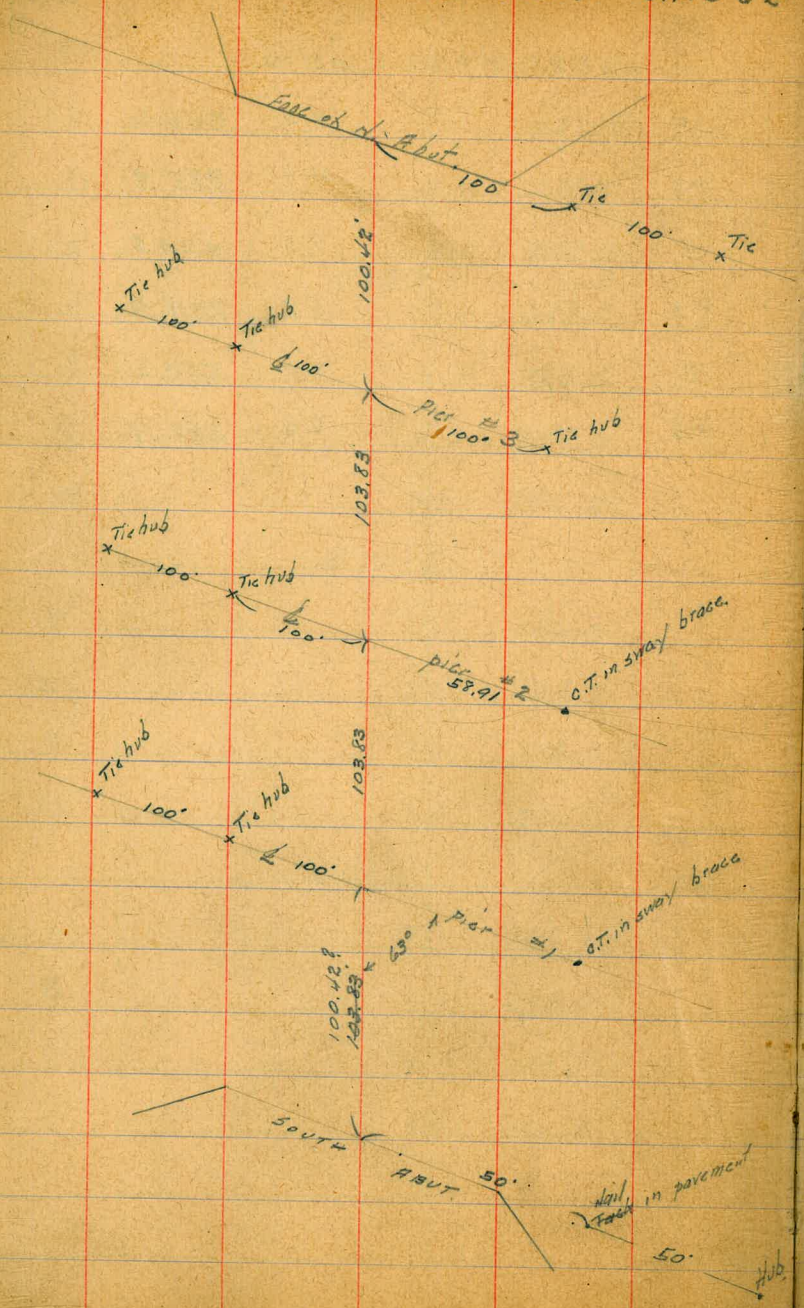 Face of N. Abut.
100
Tie
100'
Tie
100.42'
Tie hub
100'
Tie hub
℄ 100'
Pier # 3
100'
Tie hub
103.83
Tie hub
100'
Tie hub
℄
100'
pier # 2
58.91
C.T. in sway brace.
103.83
Tie hub
100'
Tie hub
℄ 100'
Pier #1
C.T. in sway brace
63°
100.42?
103.83'
SOUTH ABUT
50'
Nail
Tack in pavement
50'
Hub